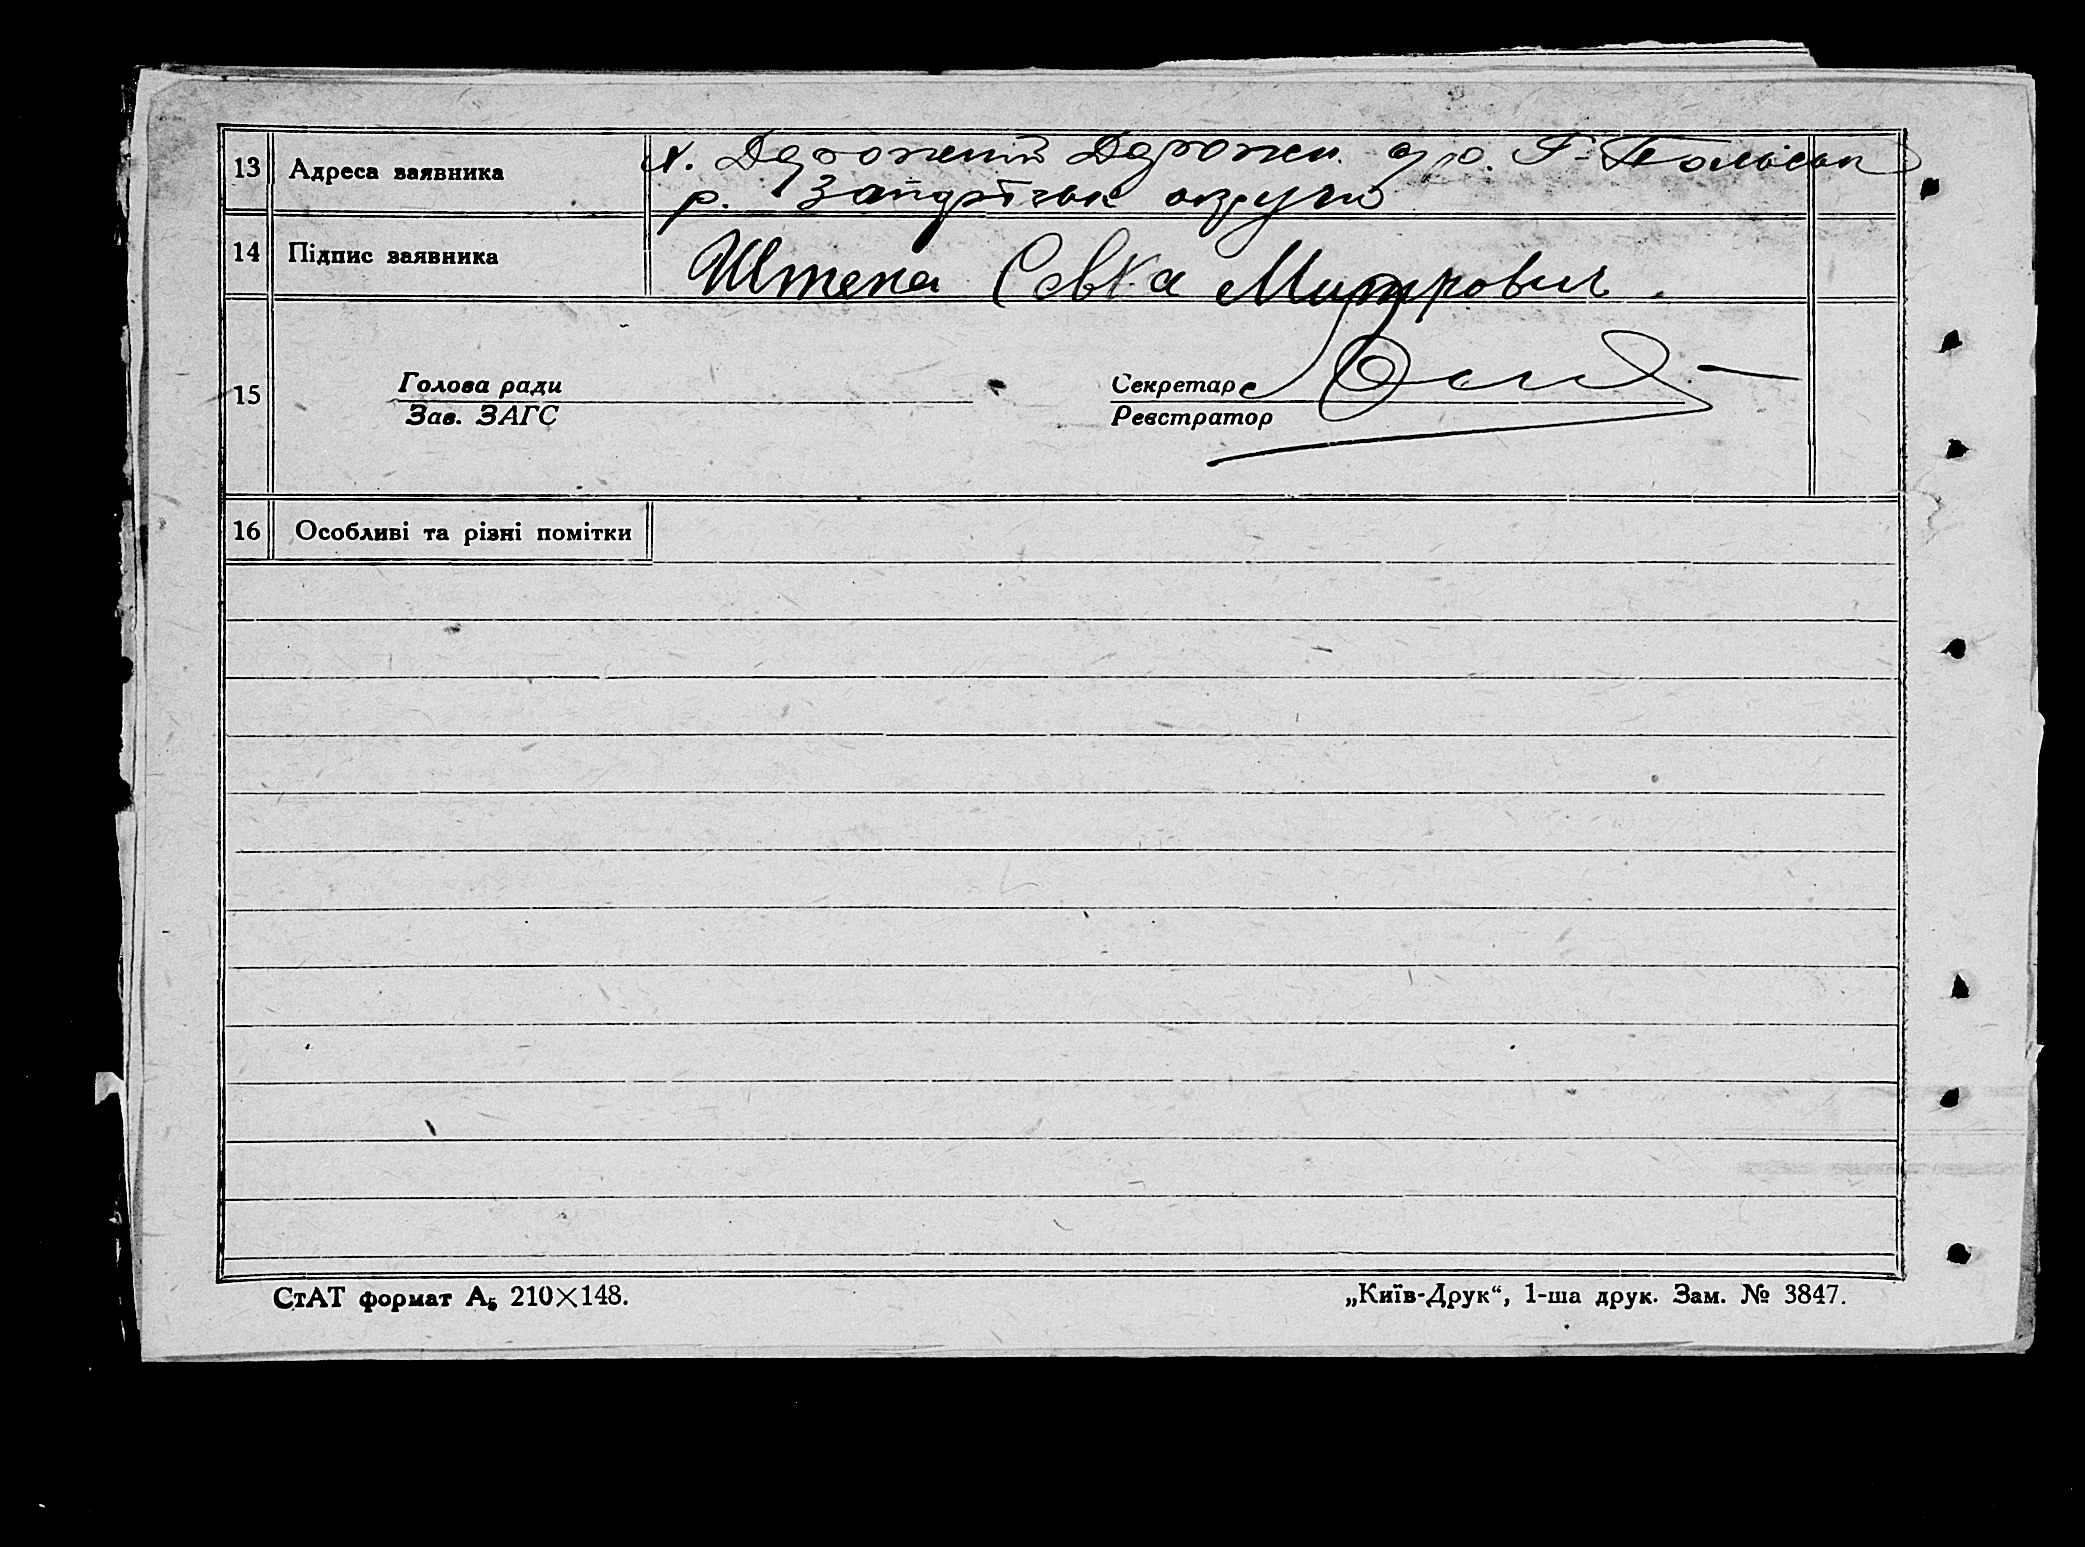 13 Адреса заявника х. Дорожений Дорожен. с/р. Г-Польськ
р. Запорізьк округи
14 Підпис заявника Штепа Савка Митрович.
15 Голова ради Секретар
Зав. ЗАГС Реєстратор
16 Особливі та різні помітки
СтАТ формат А5 210×148. „Київ-Друк“, 1-ша друк. Зам. № 3847.